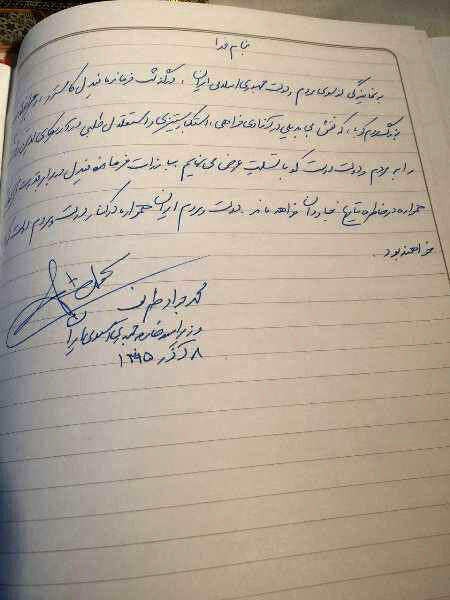 بنام خدا
به نمایندگی از سوی مردم و دولت جمهوری اسلامی ایران، درگذشت فرمانده فیدل کاسترو، رهبر
بزرگ مردم کوبا، که نقش بی بدیلی در آزادی خواهی، استکبارستیزی و استقلال طلبی در آمریکای لاتین
را به مردم و دولت دوست کوبا تسلیت عرض می نمایم. مبارزات فرمانده فیدل در برابر
همواره در خاطره تاریخ جاودان خواهد ماند. دولت و مردم ایران همواره در کنار دولت و مردم دوست
خواهند بود.
محمد جواد ظریف
وزیر امور خارجه جمهوری اسلامی ایران
۸ آذر ۱۳۹۵